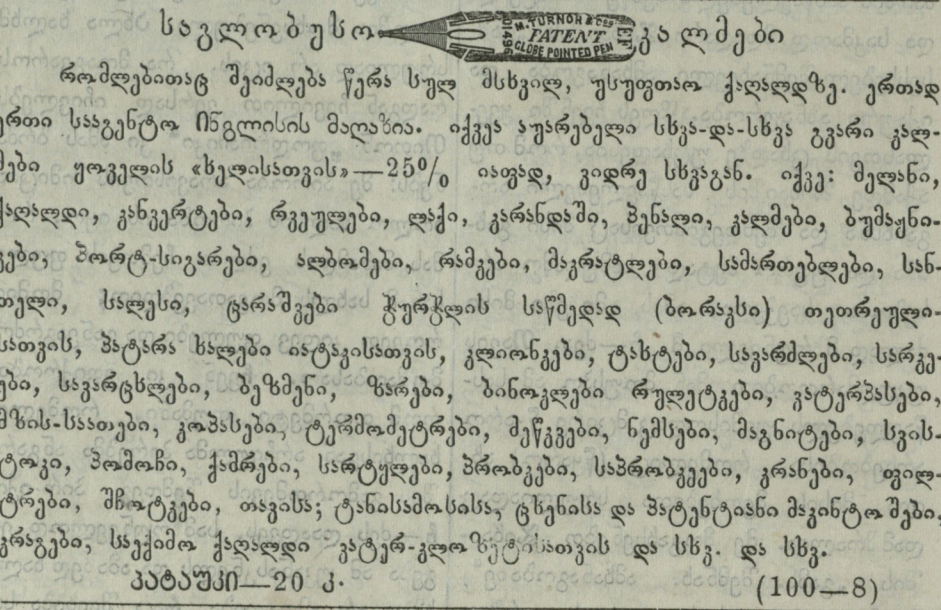 საგლობუსო M. TURNOR & Co's PATENT GLOBE POINTED PEN EF კალმები
რომლებითაც შეიძლება წერა სულ მსხვილ, უსუფთაო ქაღალდზე. ერთად
ერთი სააგენტო ინგლისის მაღაზია. იქვეა აუარებელი სხვა-და-სხვა გვარი კალ-
მები ყოველის «ხელისათვის»—25% იაფად, ვიდრე სხვაგან. იქვე: მელანი,
ქაღალდი, კანვერტები, რვეულები, ლაქი, კარანდაში, პენალი, კალმები, ბუმაჟნი-
კები, პორტ-სიგარები, ალბომები, რამკები, მაკრატლები, სამართებლები, სან-
თელი, სალესი, ცარაშვები ჭურჭლის საწმედად (ბორაკსი) თეთრეული-
სათვის, პატარა ხალები იატაკისათვის, კლიონკები, ტასტები, სავარძლები, სარკე-
ები, სავარცხლები, ბეზმენი, ზარები, ბინოკლები რულეტკები, ვატერპასები,
მზის-საათები, კოპასები, ტერმომეტრები, მეწკვები, ნემსები, მაგნიტები, სვის-
ტოკი, პომოჩი, ქამრები, სარტყლები, პრობკები, საპრობკეები, კრანები, ფილ-
ტრები, შჩოტკები, თავისა; ტანისამოსისა, ცხენისა და პატენტიანი მაკინტოშები.
კრაგები, საექიმო ქაღალდი ვატერ-კლოზეტისათვის და სხვ. და სხვ.
პატაუკი—20 კ. (100—8)